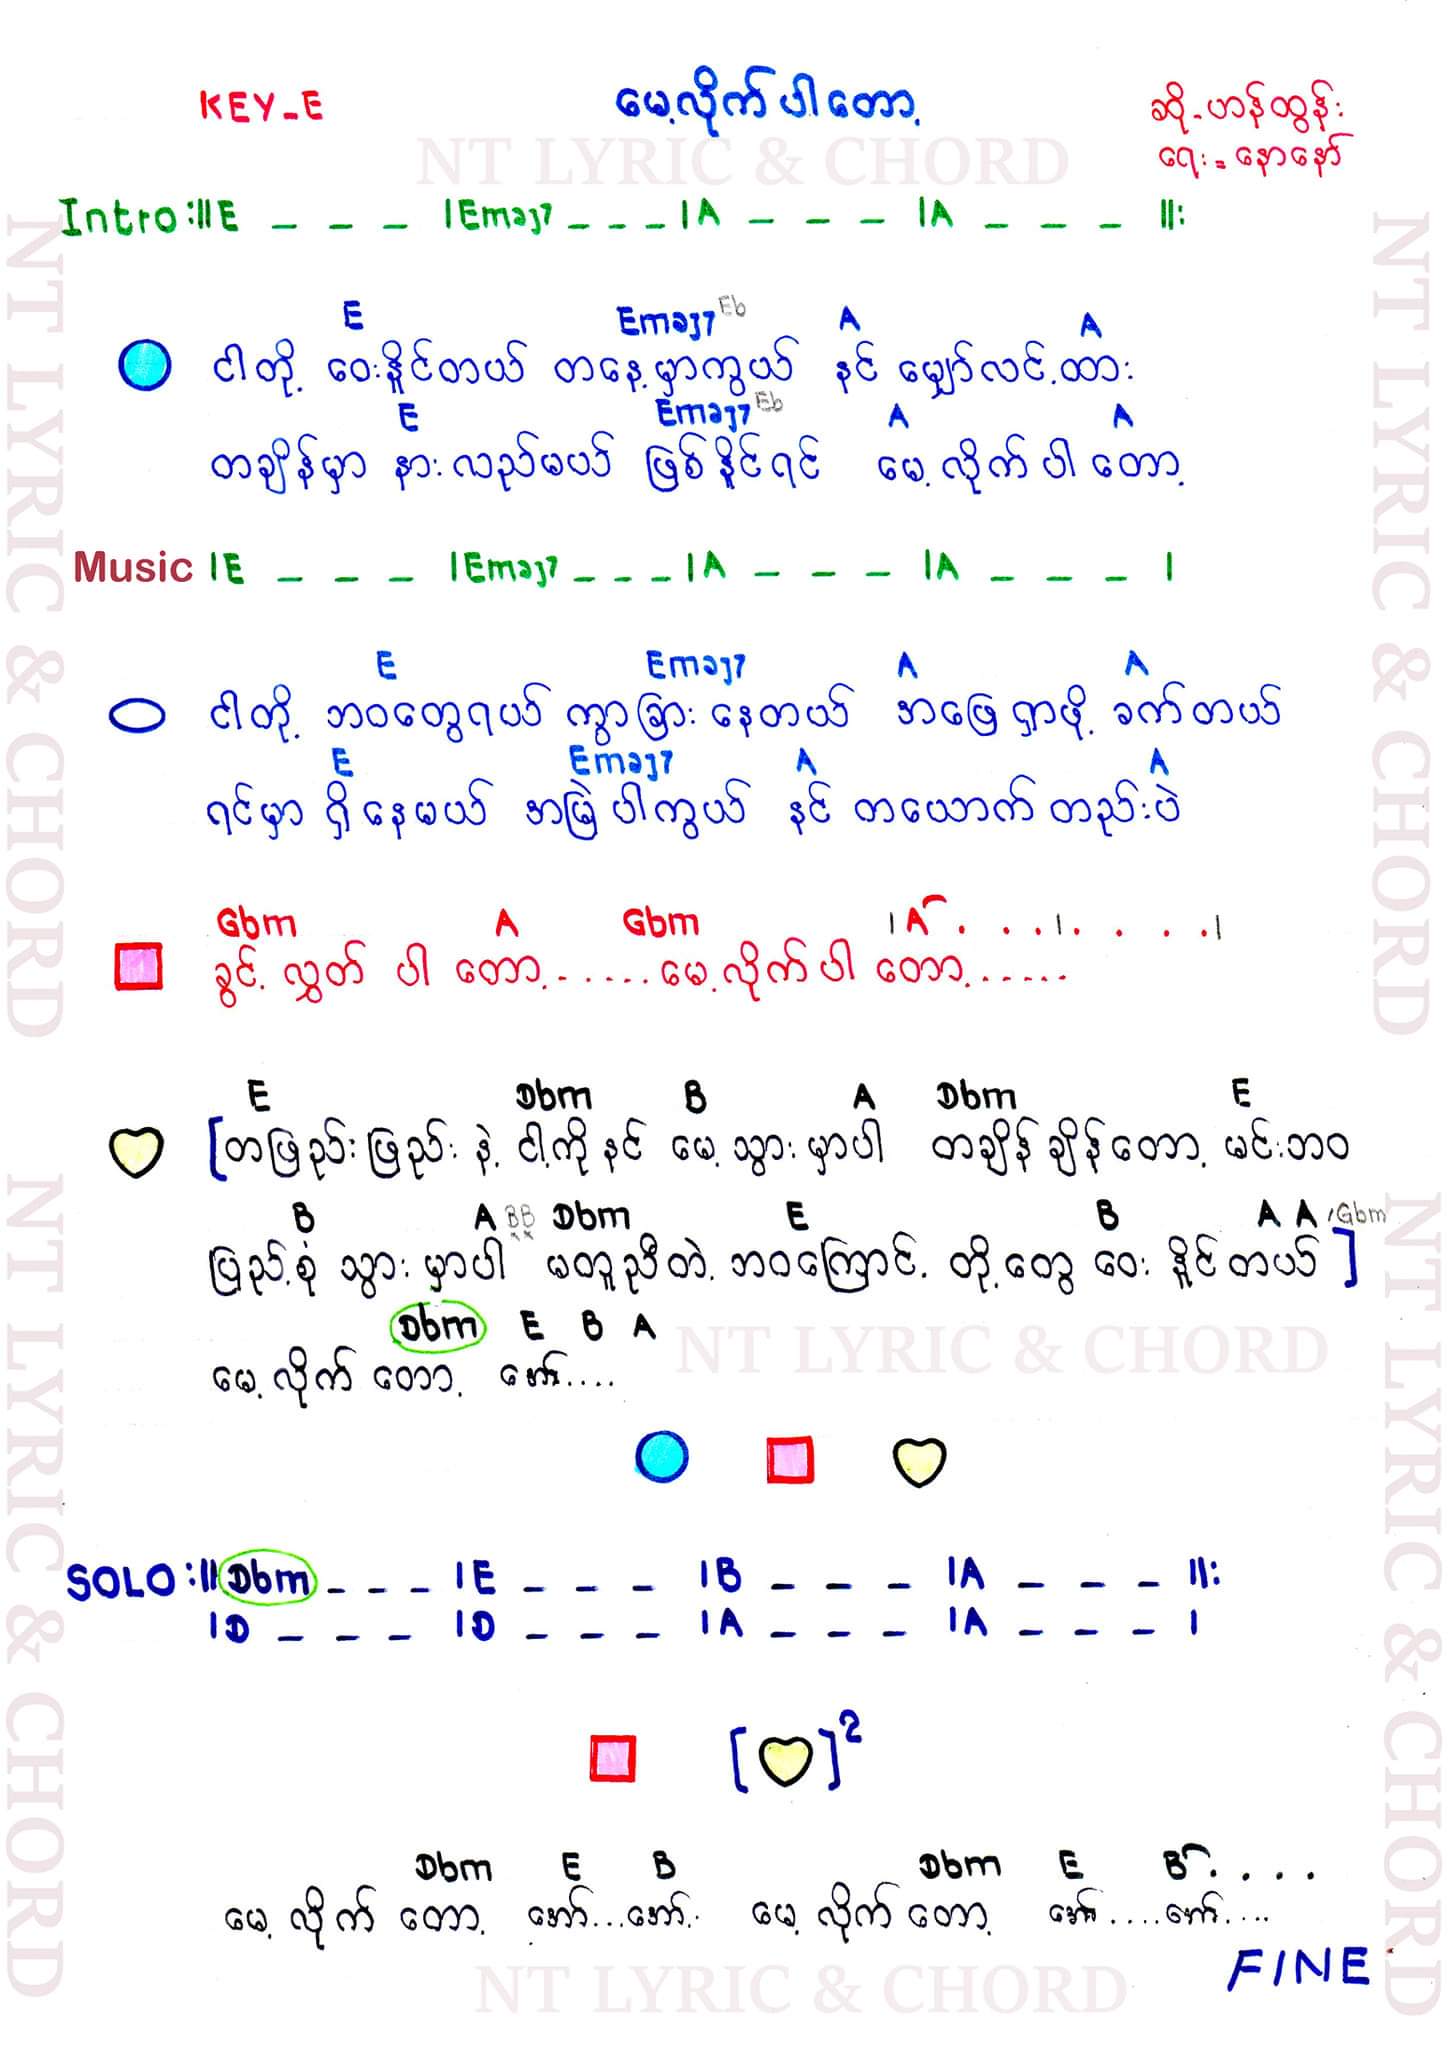 KEY_E
မေ့လိုက်ပါတော့
ဆို-ဟန်ထွန်း
ရေး=နောနော်
NT LYRIC & CHORD
Intro :||E _ _ _ |Emaj7 _ _ _ |A _ _ _ |A _ _ _ ||:
E Emaj7 Eb A A
ငါတို့ ဝေးနိူင်တယ် တနေ့မှာကွယ် နင် မျှော်လင့်ထား
E Emaj7 Eb A A
တချိန်မှာ နားလည်မယ် ဖြစ်နိူင်ရင် မေ့လိုက်ပါတော့
Music |E _ _ _ |Emaj7 _ _ _ |A _ _ _ |A _ _ _ |
E Emaj7 A A
ငါတို့ ဘဝတွေရယ် ကွာခြားနေတယ် အဖြေရှာဖို့ ခက်တယ်
E Emaj7 A A
ရင်မှာ ရှိနေမယ် အမြဲပါကွယ် နင် တယောက်တည်းပဲ
Gbm A Gbm |A . . . |. . . . |
ခွင့်လွှတ် ပါ တော့.......မေ့လိုက်ပါ တော့......
E Dbm B A Dbm E
[တဖြည်းဖြည်း နဲ့ ငါ့ကိုနင် မေ့သွားမှာပါ တချိန်ချိန်တော့ မင်းဘဝ
B A BB Dbm E B A A /Gbm
ပြည့်စုံ သွားမှာပါ မတူညီတဲ့ ဘဝကြောင့် တို့တွေ ဝေး နိူင်တယ်]
Dbm E B A
မေ့လိုက် တော့ အော်....
NT LYRIC & CHORD
SOLO :||Dbm _ _ _ |E _ _ _ |B _ _ _ |A _ _ _ ||:
|D _ _ _ |D _ _ _ |A _ _ _ |A _ _ _ |
[ ]2
Dbm E B Dbm E B . . . .
မေ့လိုက် တော့ အော်...အော်.. မေ့လိုက် တော့ အော်....အော်....
FINE
NT LYRIC & CHORD
NT LYRIC & CHORD
NT LYRIC & CHORD
NT LYRIC & CHORD
NT LYRIC & CHORD